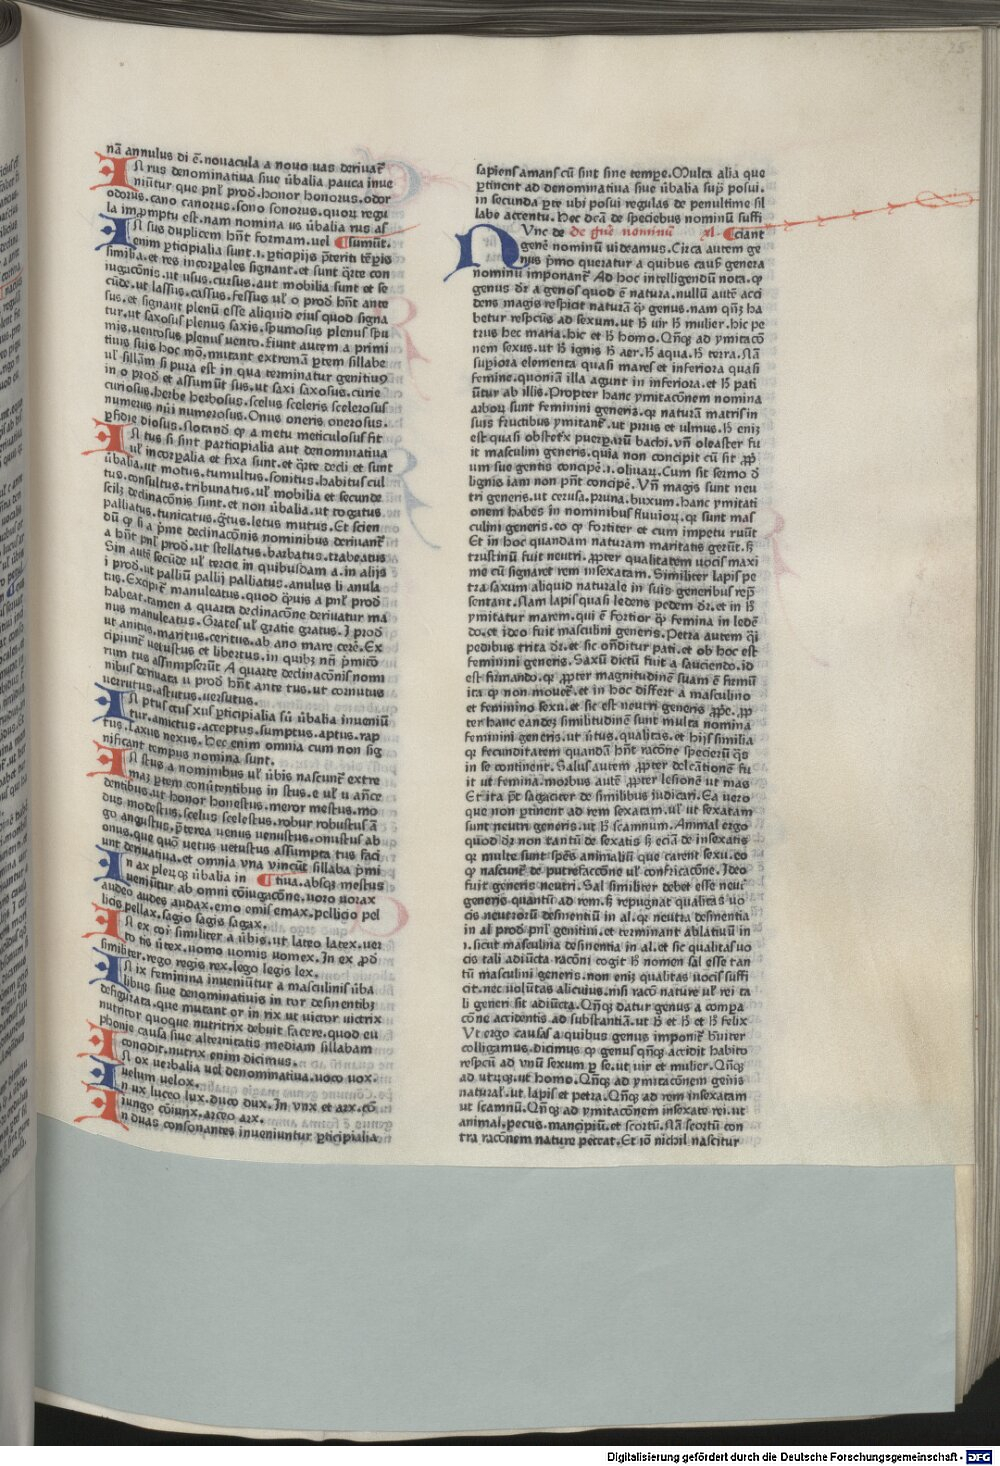 nā annulus di ē. novacula a novo uas derivať
IN rus denominativa siue ůbalia pauca inue
niūtur que pnľ prod. honor honorus. odor
odorus. cano canorus. sono sonorus. quoꝝ regu
la īmꝓmptu est. nam nomina us ůbalia rus as
IN sus duplicem hn̄t formam. uel sumūt.
enim ꝑticipialia sunt. i. ꝑticipijs p̄terit tēꝑis
similia. et res incorꝑales signant. et sunt q̄rte con
iugacōnis. ut usus. cursus. aut mobilia sunt et se
cūde. ut lassus. cassus. fessus uľ o prod hn̄t ante
sus. et signant plenū esse aliquid eius quod signa
tur. ut saxosus plenus saxis. spumosus plenus spu
mis. uentosus plenus uento. Fiunt autem a primi
tiuis suis hoc mō. mutant extremā ꝑtem sillabe
uľ sillām si pura est in qua terminatur genitiuꝯ
in o prod et assumūt sus. ut saxi saxosus. curie
curiosus. herbe herbosus. scelus sceleris scelerosus
numerus nūi numerosus. Onus oneris onerosus.
ꝑfidie diosus. Notandū ꝙ a metu meticulosus fit
IN tus si sint participialia aut denominativa
uľ incorꝑalia et fixa sunt. et q̄rte decli et sunt
ůbalia. ut motus. tumultus. sonitus. habitus cul
tus. consultus. tribunatus. uľ mobilia et secunde
scilꝫ declinacōnis sunt. et non ůbalia. ut togatus
palliatus. tunicatus. ḡtus. letus mutus. Et scien
dū ꝙ si a p̄me declinacōnis nominibus derivanť
a hn̄t pnľ prod. ut stellatus. barbatus. trabeatus
Sin autē secūde uľ tercie in quibusdam a. in alijs
i prod. ut palliū pallij palliatus. anulus li anula
tus. Excipiť manuleatus. quod q̄uis a pnľ prod
habeat. tamen a quarta declinacōne derivatur ma
nus manuleatus. Grates uľ gratie gratus. I prod
ut anitus. maritus. ceritus. ab ano mare cere. Ex
cipiunť uetustus et libertus. in quibꝫ nn̄ p̄mitō
rum tus assumpserūt A quarte declinacōnis nomi
nibus derivata u prod hn̄t ante tus. ut cornutus
uerrutus. astutus. uersutus.
IN ptus ctus xus ꝑticipialia sū ůbalia inueniū
tur. amictus. acceptus. sumptus. aptus. rap
tus. taxus nexus. Hec enim omnia cum non sig
nificant tempus nomina sunt.
IN stus a nominibus uľ ůbis nascunť extre
maꝫ ꝑtem conůtentibus in stus. e uľ u ān̄ce
dentibus. ut honor honestus. meror mestus. mo
dus modestus. scelus scelestus. robur robustus ā
go angustus. p̄terea uenus uenustus. onustus ab
onus. que quō uetus uetustus assumpta tus faci
unt derivativa. et omnia vna vincūt sillaba p̄mi
IN ax pleꝝqꝫ ůbalia in tiua. absqꝫ mestus
ueniūtur ab omni cōiugacōne. uoro uorax
audeo audes audax. emo emis emax. pellicio pel
licis pellax. sagio sagis sagax.
IN ex coī similiter a ůbis. ut lateo latex. uer
to tis ůtex. uomo uomis uomex. In ex ꝓd
similiter. rego regis rex. lego legis lex.
IN ix feminina inueniūtur a masculinis ůba
libus siue denominativis in tor desinentibꝫ
defigurata. que mutant or in rix ut uictor uictrix
nutritor quoque nutritrix debuit facere. quod eu
phonie causa siue alternitatis mediam sillabam
concidit. nutrix enim dicimus.
IN ox uerbalia uel denominativa. uoco uox.
uelum uelox.
IN ux luceo lux. duco dux. In ynx et arx. cō
iungo cōiunx. arceo arx.
IN duas consonantes inueniuntur ꝑticipialia
sapiens amans cū sint sine tempe. Multa alia que
ꝑtinent ad denominativa siue ůbalia supͥ posui.
in secunda ꝑte ubi posui regulas de penultime sil
labe accentu. Hec dcā de speciebus nominū suffi
NUnc de de gn̄e nominū xl. ciant
genē nominū uideamus. Circa autem ge
nus p̄mo queratur a quibus causͥ genera
nominū imponanť Ad hoc intelligendū nota. ꝙ
genus dͬ a genos quod ē natura. nullū autē acci
dens magis respicit naturā ꝙ genus. nam qn̄ꝫ ha
betur respcūs ad sexum. ut ħ uir ħ mulier. hic pe
trus hec maria. hic et ħ homo. Qn̄qꝫ ad ymitacō
nem sexus. ut ħ ignis ħ aer. ħ aqua. ħ terra. Nā
suꝑiora elementa quasi mares et inferiora quasi
femine. quoniā illa agunt in inferiora. et ħ pati
ūtur ab illis. Propter hanc ymitacōnem nomina
arboꝝ sunt feminini generis. qꝛ naturā matris in
suis fructibus ymitanť. ut pirus et ulmus. ħ eniꝫ
est quasi obstetͥx puerparū bachi. vn̄ oleaster fu
it masculini generis. quia non concipit cū sit ꝓp̄
um sue gentis concipē. i. olivaꝝ. Cum sit sermo ď
lignis iam non pn̄t concipē. Vn̄ magis sunt neu
tri generis. ut cerusa. pruna. buxum. hanc ymitati
onem habes in nominibus fluuioꝝ. qꝛ sunt mas
culini generis. eo ꝙ fortiter et cum impetu ruūt
Et in hoc quandam naturam maritatis gerūt. ſꝫ
trustinū fuit neutri. ꝓpter qualitatem uocis maxi
me cū signaret rem insexatam. Similiter lapis pe
tra saxum aliquid naturale in suis generibus rep̄
sentant. Nam lapis quasi ledens pedem dͬ. et in ħ
ymitatur marem. qui ē fortior ꝙ femina in ledē
do. et ideo fuit masculini generis. Petra autem q̄i
pedibus trita dͬ. et sic on̄ditur pati. et ob hoc est
feminini generis. Saxū dictū fuit a sauciendo. id
est firmando. qꝛ ꝓpter magnitudinē suam ē firmū
ita ꝙ non moueť. et in hoc differt a masculino
et feminino sexu. et sic est neutri generis ꝓpe. ꝓp
ter hanc eandeꝫ similitudinē sunt multa nomina
feminini generis. ut ůtus. qualitas. et hijs similia
qꝛ fecunditatem quandā hn̄t racōne specierū q̄s
in se continent. Salus autem ꝓpter delcātionē fu
it ut femina. morbus autē ꝓpter lesionē ut mas
Et ita p̄t sagaciter de similibus iudicari. Ea uero
que non ꝑtinent ad rem sexatam. uľ ut sexatam
sunt neutri generis. ut ħ scamnum. Animal ergo
quod dͬ non tantū de sexatis ſꝫ eciā de insexatis
qꝛ multe sunt spēs animaliū que carent sexu. eo
ꝙ nascunť de putrefaccōne uľ confricacōne. Ideo
fuit generis neutri. Sal similiter debet esse neutͥ
generis quantū ad rem. ſꝫ repugnat qualitas uo
cis neutroꝝ desinentiū in al. qꝛ neutra desinentia
in al prod pnľ genitini. et terminant ablatiuū in
i. sicut masculina desinentia in al. et sic qualitas uo
cis tali adiūcta racōni cogit ħ nomen sal esse tan
tū masculini generis. non eniꝫ qualitas uocis suffi
cit. nec volūtas alicuius. nisi racō nature uľ rei ta
li generi sit adiūcta. Qn̄qꝫ datur genus a compa
cōne accidentis ad substantiā. ut ħ et ħ et ħ felix
Vt ergo causas a quibus genus imponiť breuiter
colligamus. dicimus ꝙ genus qn̄qꝫ accidit habito
respcū ad vnū sexum ꝑ se. ut uir et mulier. Qn̄qꝫ
ad utrūqꝫ. ut homo. Qn̄qꝫ ad ymitacōnem gen̄is
naturaľ. ut lapis et petra. Qn̄qꝫ ad rem insexatam
ut scamnū. Qn̄qꝫ ad ymitacōnem insexate rei. ut
animal. pecus. mancipiū. et scortū. Nā scortū con
tra racōnem nature peccat. Et iō nichil nascitur
Digitalisierung gefördert durch die Deutsche Forschungsgemeinschaft - DFG